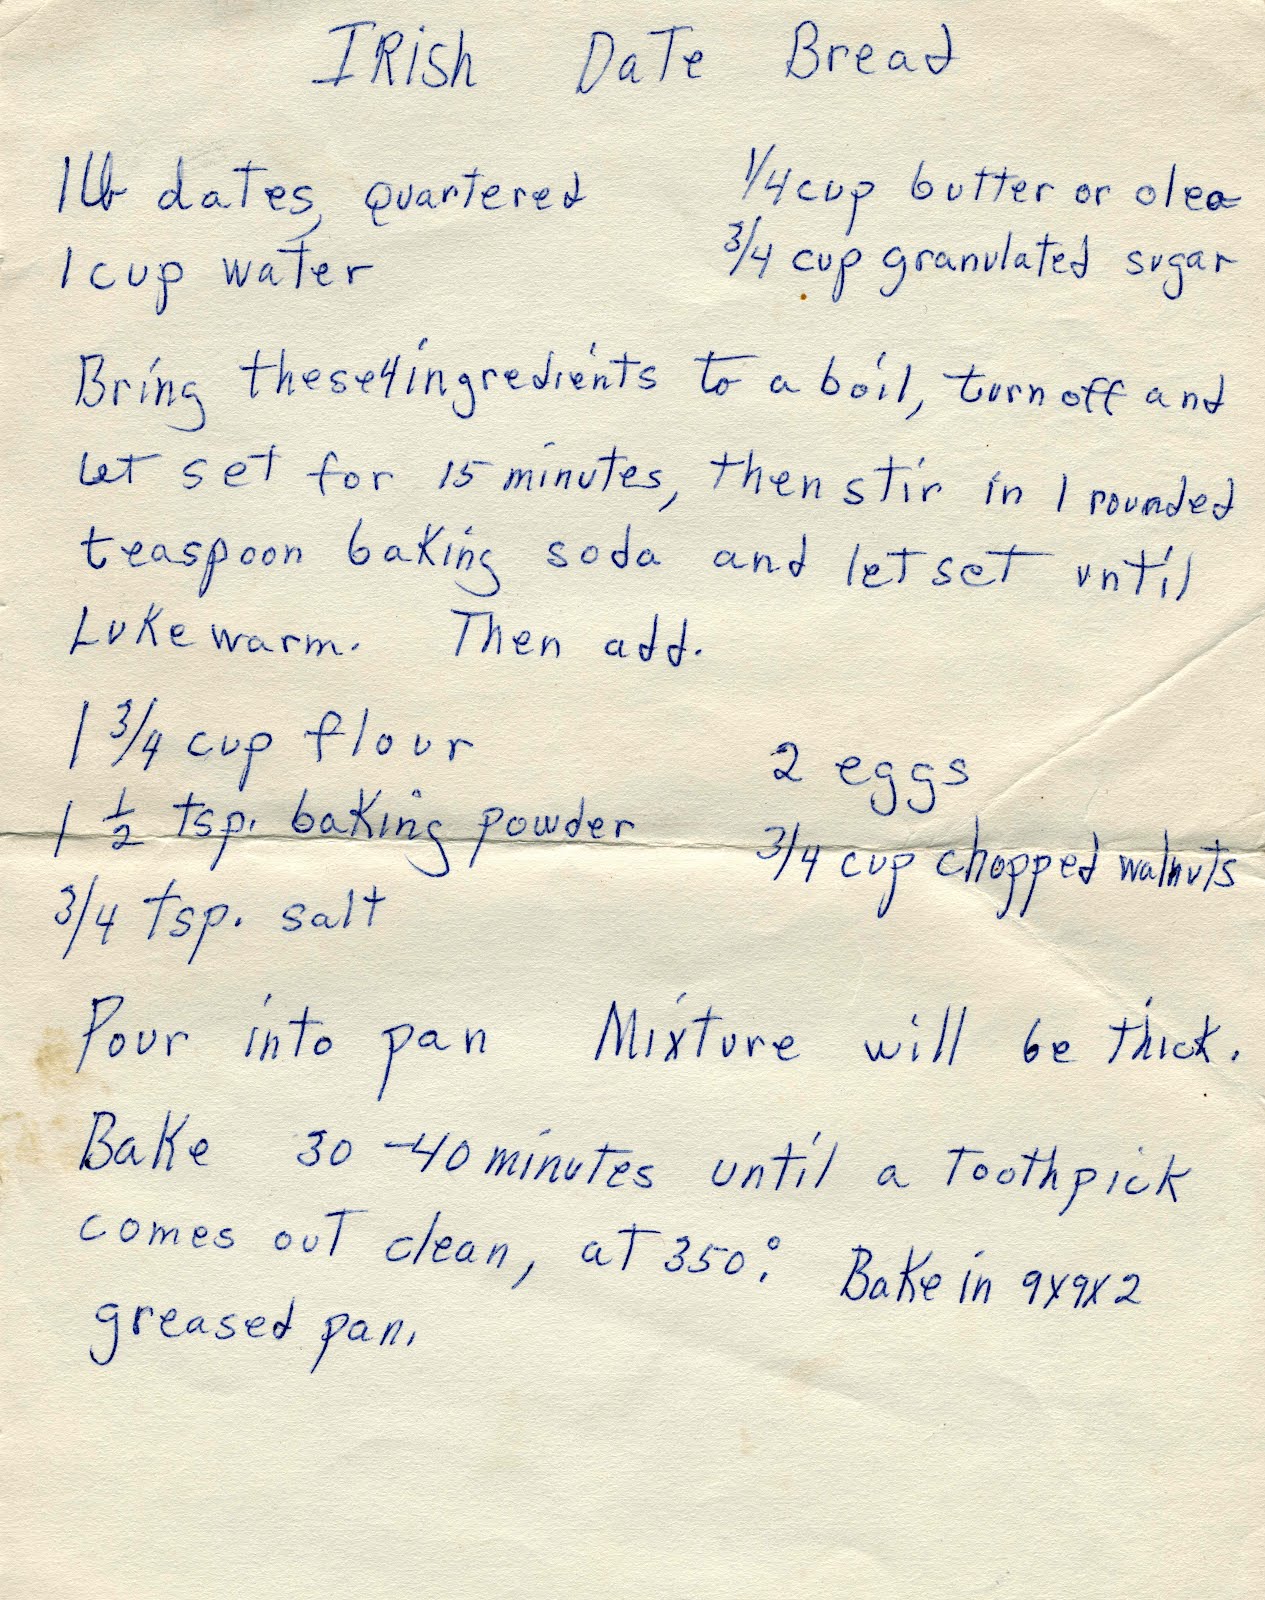 IRish Date Bread
1 lb dates, quartered
1 cup water
1/4 cup butter or oleo
3/4 cup granulated sugar
Bring these 4 ingredients to a boil, turn off and
let set for 15 minutes, then stir in 1 rounded
teaspoon baking soda and let set until
Luke warm. Then add.
1 3/4 cup flour
1 1/2 tsp. baking powder
3/4 tsp. salt
2 eggs
3/4 cup chopped walnuts
Pour into pan Mixture will be thick.
Bake 30-40 minutes until a toothpick
comes out clean, at 350°. Bake in 9x9x2
greased pan.